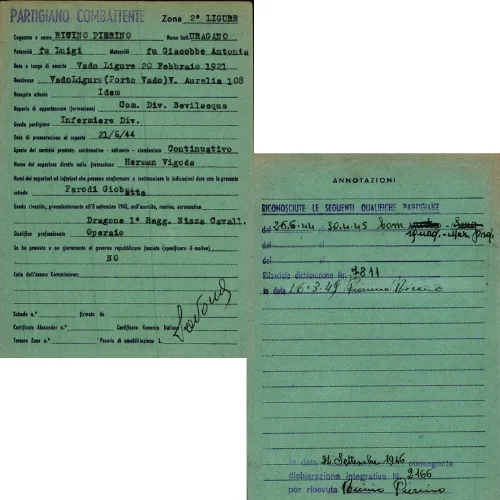 PARTIGIANO COMBATTENTE Zona 2ª LIGURE
Cognome e nome RICINO PIERINO Nome batt. URAGANO
Paternità fu Luigi Maternità fu Giacobbe Antonia
Data e luogo di nascita Vado Ligure 20 Febbraio 1921
Residenza VadoLigure(Porto Vado)V. Aurelia 108
Recapito attuale Idem
Reparto di appartenenza (formazione) Com. Div. Bevilacqua
Grado partigiano Infermiere Div.
Data di presentazione al reparto 21/6/44
Specie del servizio prestato: continuativo - saltuario - clandestino Continuativo
Nome del superiore diretto nella formazione Herman Vigoda
Nomi dei superiori ed inferiori che possono confermare o testimoniare le indicazioni date con la presente
scheda Parodi Giobatta
Grado rivestito, precedentemente all'8 settembre 1943, nell'esercito, marina, aeronautica
Dragone 1° Regg. Nizza Cavall.
Qualifica professionale Operaio
Se ha prestato o no giuramento al governo repubblicano fascista (specificare il motivo)
NO
Esito dell'esame Commissione:
Savona
Scheda n.° firmata da
Certificato Alexander n.° Certificato Governo Italiano
Tessera Zona n.° Premio di smobilitazione L.
ANNOTAZIONI
RICONOSCIUTE LE SEGUENTI QUALIFICHE PARTIGIANE
dal 26.6.44 30.4.45 Com.
squad.
dal al
dal al
Rilasciata dichiarazione Nr. 7811
in data 16.3.49
In data 24 Settembre 1946 consegnata
dichiarazione integrativa N. 2166
per ricevuta Pierino